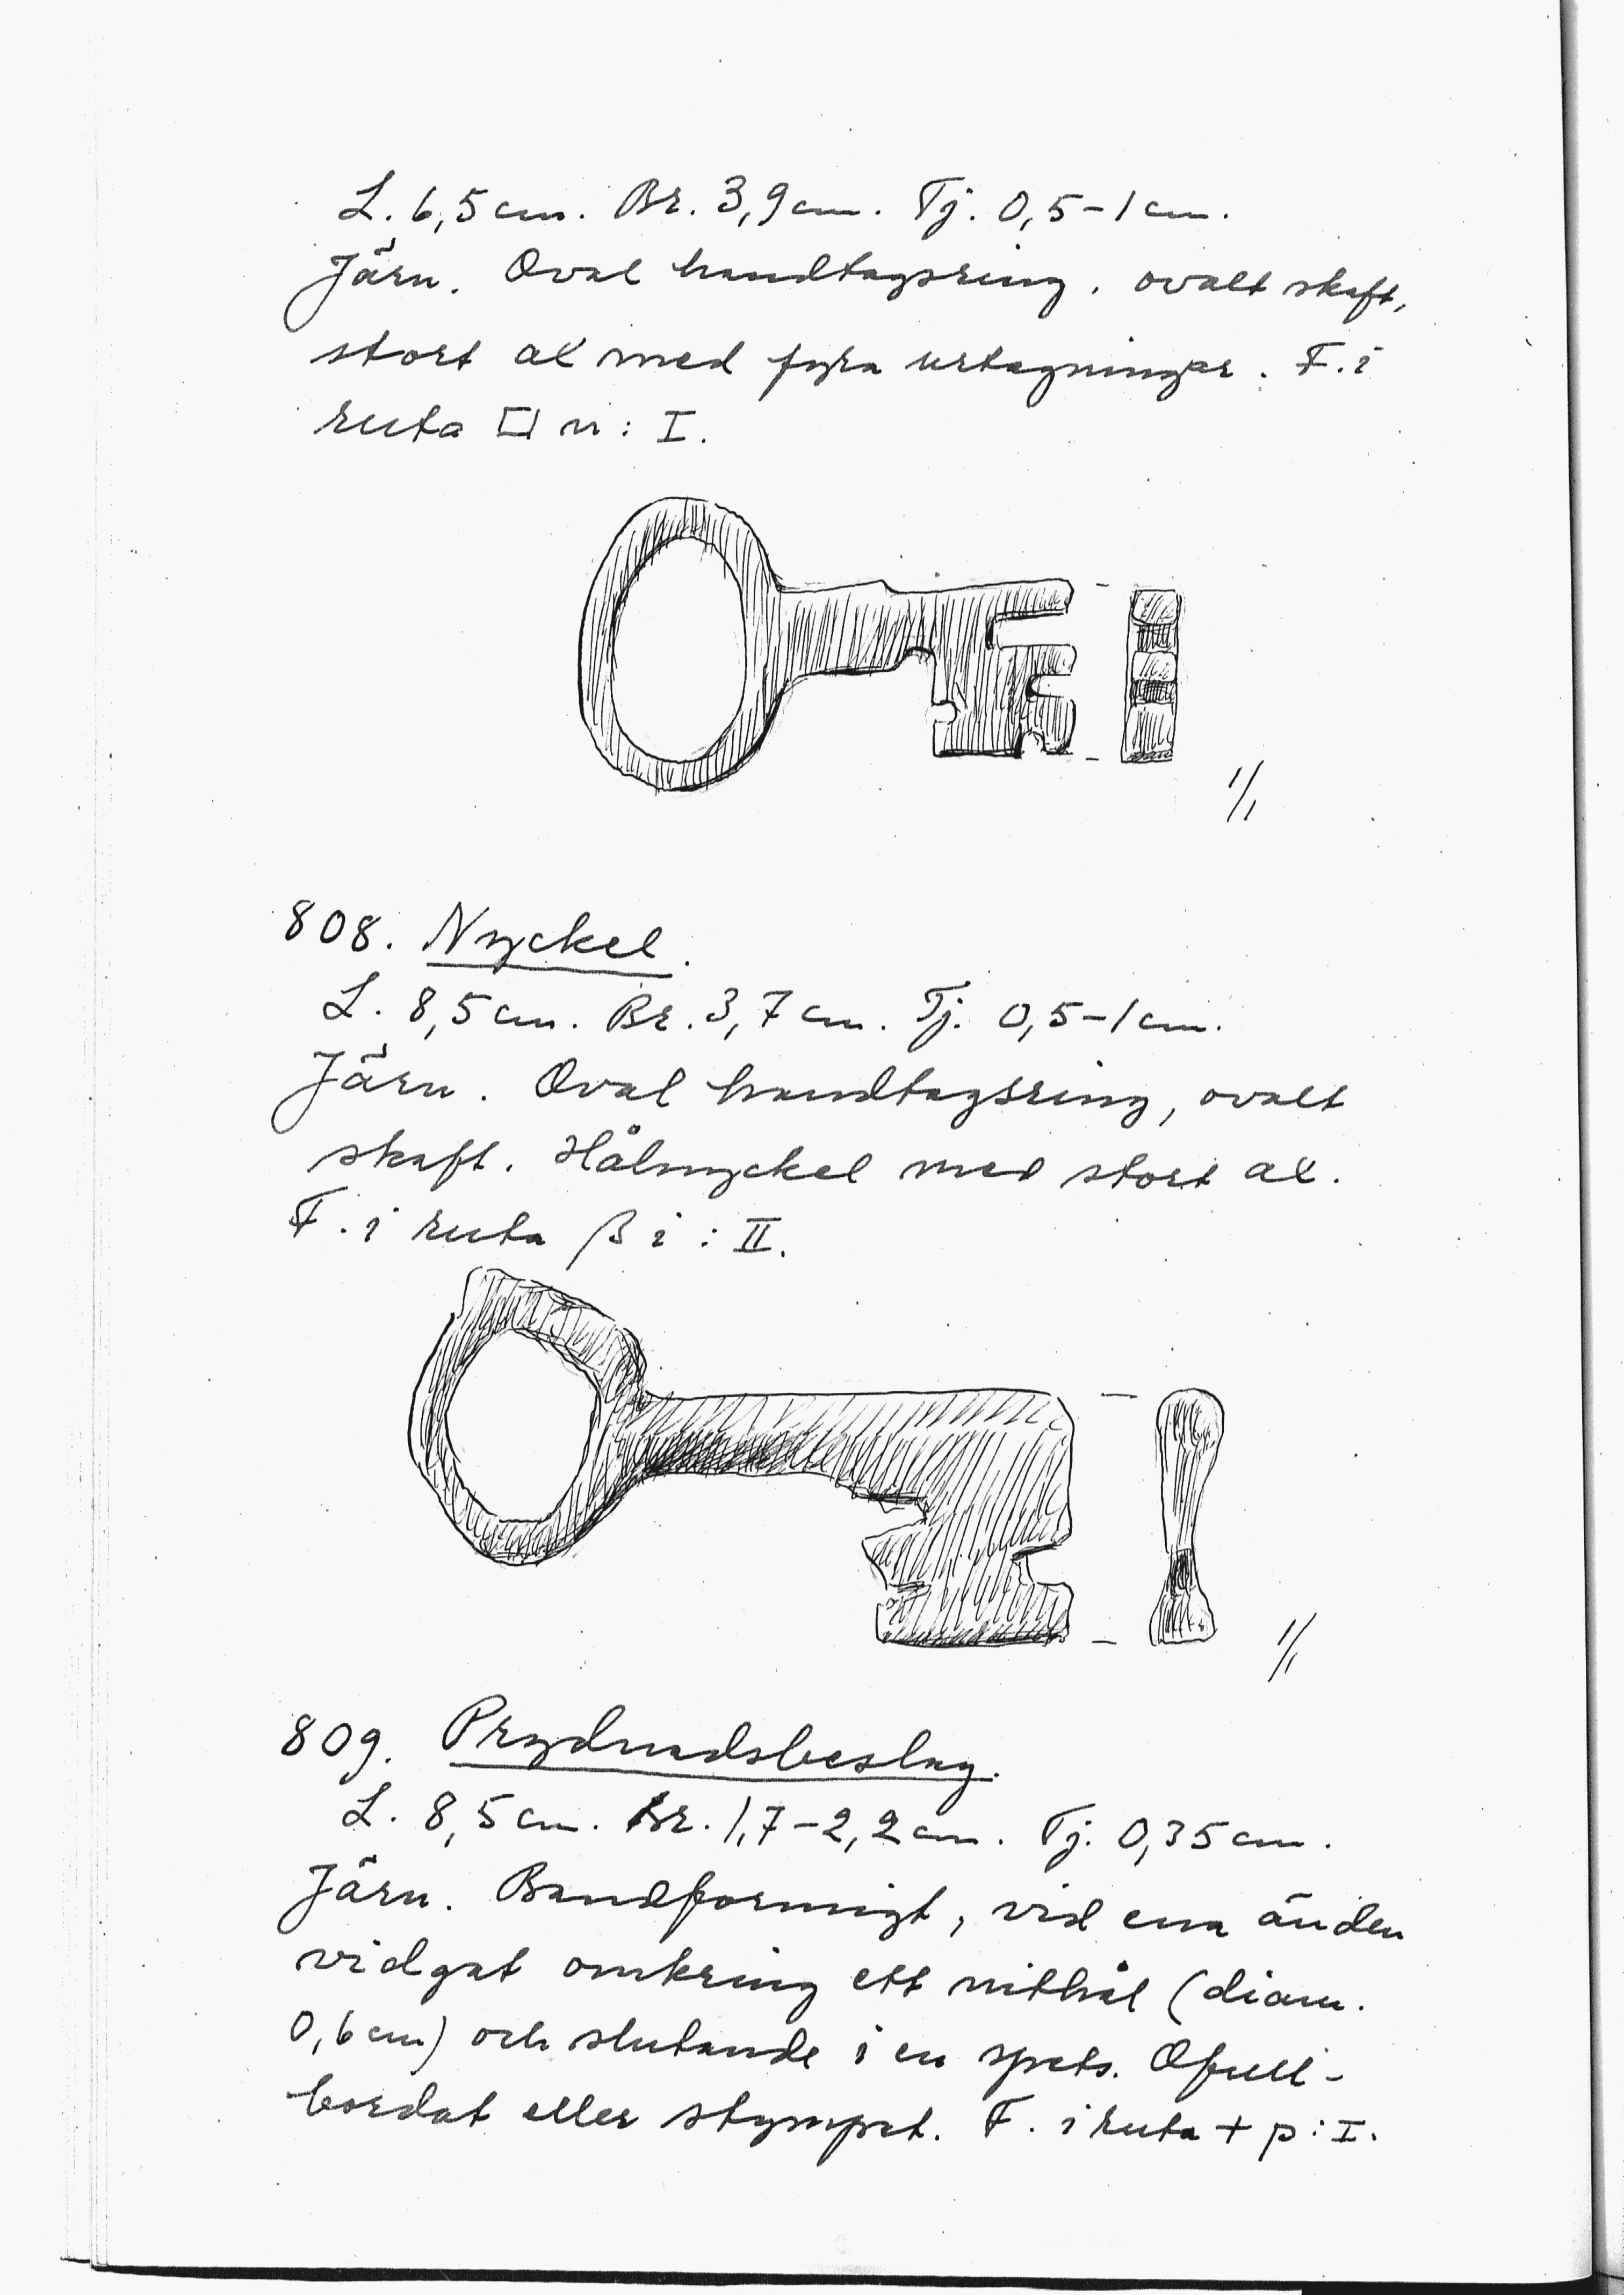 L. 6,5 cm. Br. 3,9 cm. Tj. 0,5-1 cm.
Järn. Oval handtagsring, ovalt skaft,
stort ax med fyra urtagningar. F. i
ruta □ n : I.
1/1
808. Nyckel.
L. 8,5 cm. Br. 3,7 cm. Tj. 0,5-1 cm.
Järn. Oval handtagsring, ovalt
skaft. Hålnyckel med stort ax.
F. i ruta β i : II.
1/1
809. Prydnadsbeslag.
L. 8,5 cm. Br. 1,7-2,2 cm. Tj. 0,35 cm.
Järn. Bandformigt, vid ena änden
vidgat omkring ett nithål (diam.
0,6 cm) och slutande i en spets. Ofull-
bordat eller stympat. F. i ruta + p : I.